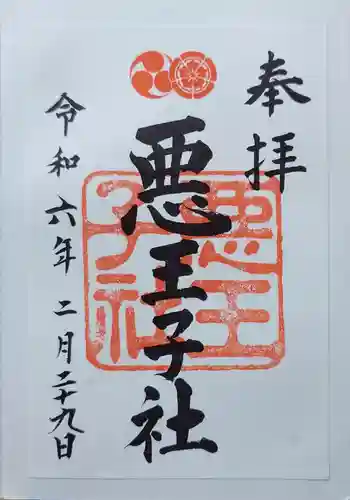 奉拝
悪王子社
悪王
子社
令和六年 二月二十九日